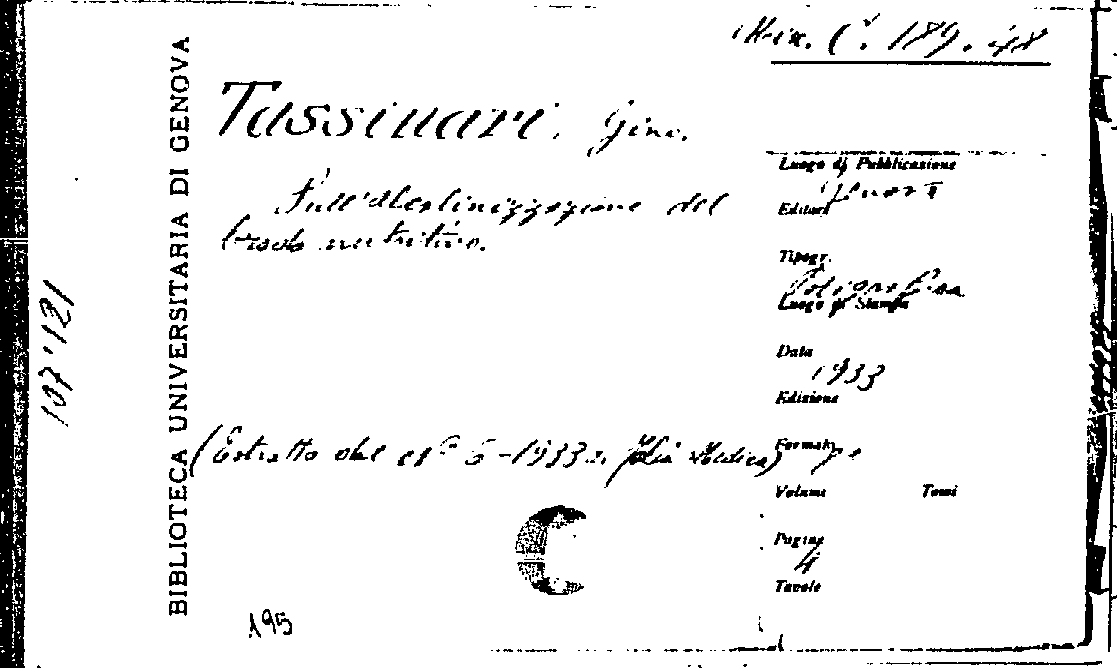 Mix. C. 189. 48
Tassinari, Gino.
Sull'alcalinizzazione del
brodo nutritivo.
(Estratto dal n° 6 - 1933 Medica)
Luogo di Pubblicazione
Editore
Tipogr.
Poligrafica
Luogo di Stampa
Data
1933
Edizione
Formato
Volume Tomi
Pagine
4
Tavole
BIBLIOTECA UNIVERSITARIA DI GENOVA
107'121
195